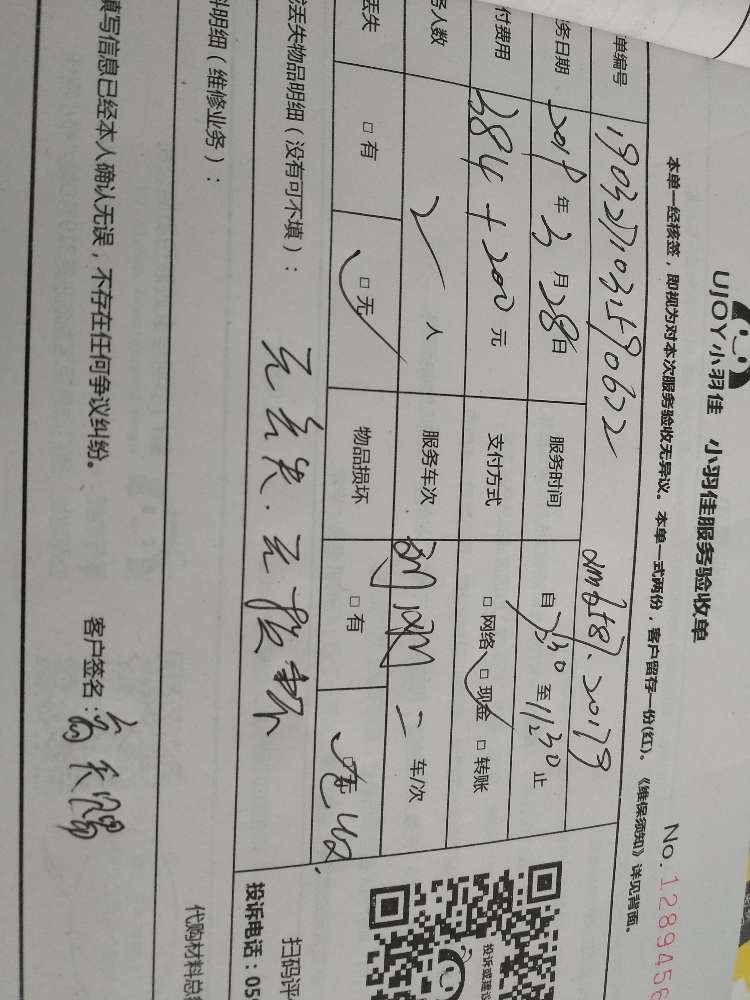 UJOY小羽佳 小羽佳服务验收单
本单一经核签，即视为对本次服务验收无异议。本单一式两份，客户留存一份(红)。《维保须知》详见背面。
No.1289456
单编号
务日期 2019年3月28日 服务时间 自7:30至11:30止
付费用 384+200元 支付方式 □网络 □现金 □转账
务人数 2人 服务车次 二车/次
丢失 □有 □无 物品损坏 □有
丢失物品明细（没有可不填）： 无丢失.无损坏
料明细（维修业务）：
填写信息已经本人确认无误，不存在任何争议纠纷。 客户签名：
代购材料总
投诉或建议
扫码评
投诉电话：059